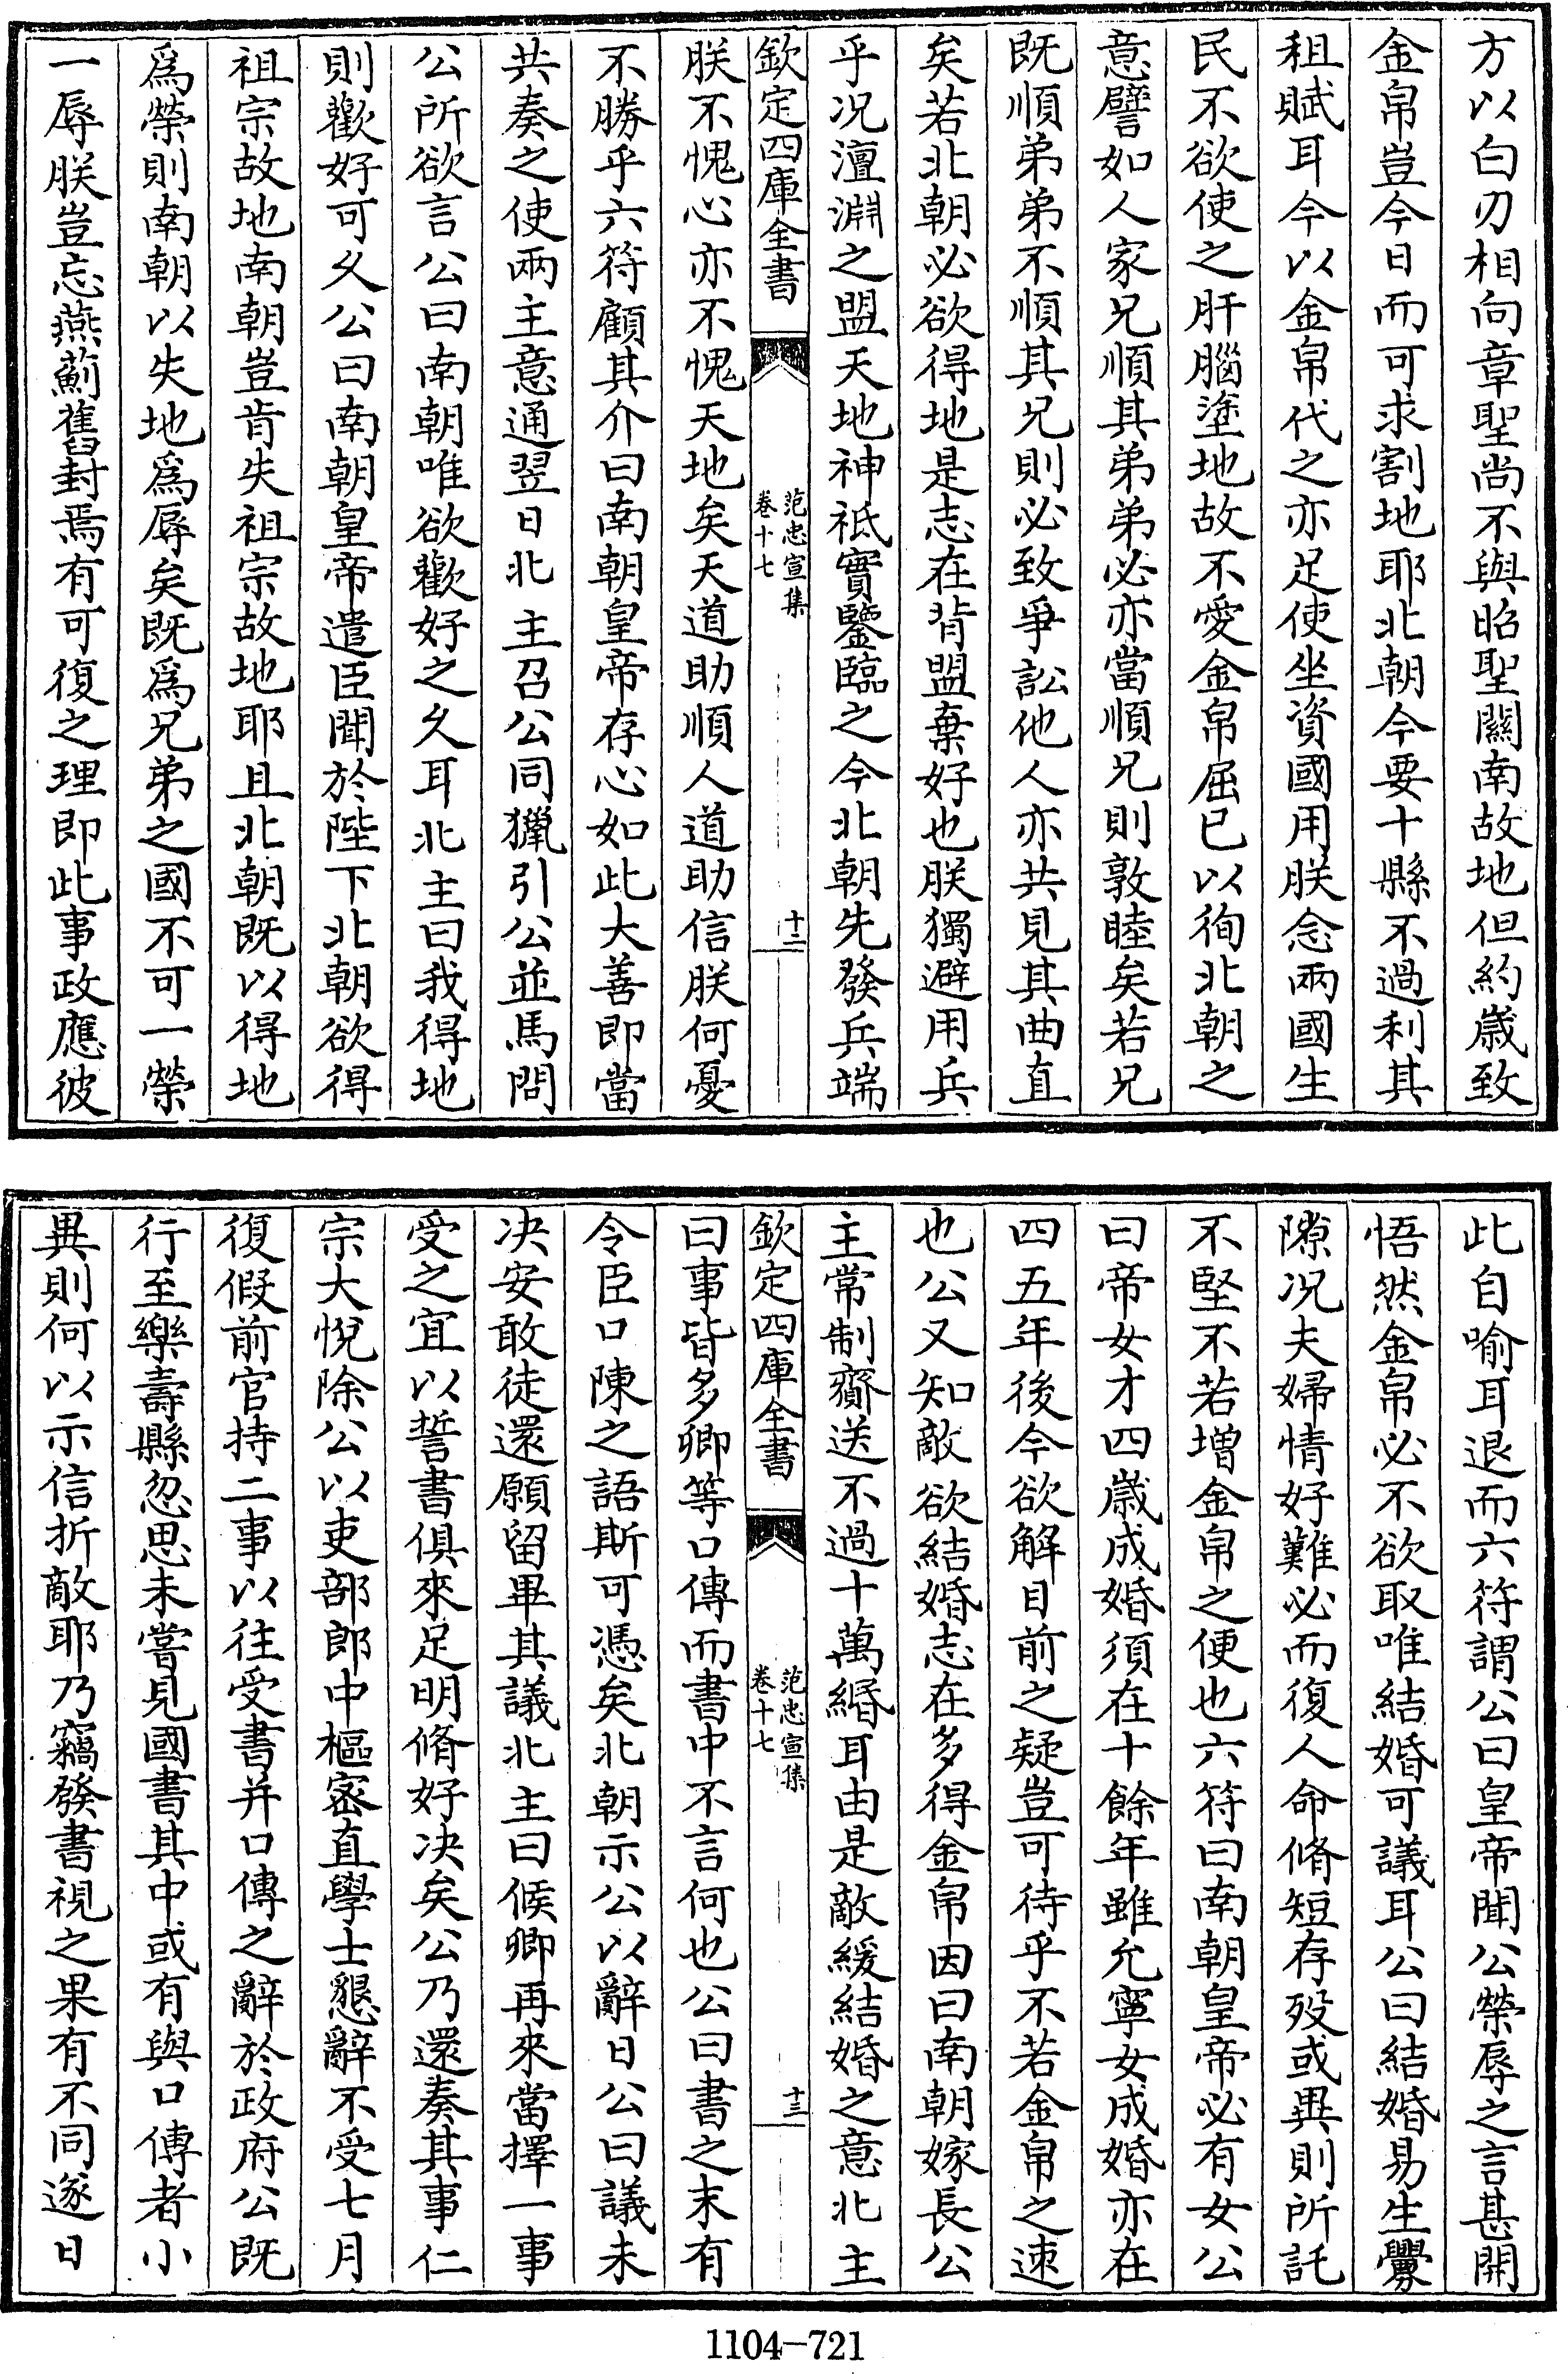 方以白刃相向章聖尚不與昭聖關南故地但約歳致
金帛豈今日而可求割地耶北朝今要十縣不過利其
租賦耳今以金帛代之亦足使坐資國用朕念兩國生
民不欲使之肝腦塗地故不愛金帛屈已以徇北朝之
意譬如人家兄順其弟弟必亦當順兄則敦睦矣若兄
既順弟弟不順其兄則必致爭訟他人亦共見其曲直
矣若北朝必欲得地是志在背盟棄好也朕獨避用兵
乎况澶淵之盟天地神祇實鑒臨之今北朝先發兵端
欽定四庫全書
范忠宣集
卷十七
十二
朕不愧心亦不愧天地矣天道助順人道助信朕何憂
不勝乎六符顧其介曰南朝皇帝存心如此大善即當
共奏之使兩主意通翌日北主召公同獵引公並馬問
公所欲言公曰南朝唯欲歡好之久耳北主曰我得地
則歡好可久公曰南朝皇帝遣臣聞於陛下北朝欲得
祖宗故地南朝豈肯失祖宗故地耶且北朝既以得地
爲榮則南朝以失地爲辱矣既爲兄弟之國不可一榮
一辱朕豈忘燕薊舊封焉有可復之理即此事政應彼
此自喻耳退而六符謂公曰皇帝聞公榮辱之言甚開
悟然金帛必不欲取唯結婚可議耳公曰結婚易生釁
隙况夫婦情好難必而復人命脩短存殁或異則所託
不堅不若增金帛之便也六符曰南朝皇帝必有女公
曰帝女才四歳成婚須在十餘年雖允寧女成婚亦在
四五年後今欲解目前之疑豈可待乎不若金帛之速
也公又知敵欲結婚志在多得金帛因曰南朝嫁長公
主常制齎送不過十萬緡耳由是敵緩結婚之意北主
欽定四庫全書
范忠宣集
卷十七
十三
曰事皆多卿等口傳而書中不言何也公曰書之末有
令臣口陳之語斯可憑矣北朝示公以辭日公曰議未
决安敢徒還願留畢其議北主曰候卿再來當擇一事
受之宜以誓書俱來足明脩好决矣公乃還奏其事仁
宗大悅除公以吏部郎中樞密直學士懇辭不受七月
復假前官持二事以往受書并口傳之辭於政府公既
行至樂壽縣忽思未嘗見國書其中或有與口傳者小
異則何以示信折敵耶乃竊發書視之果有不同遂日
1104-721